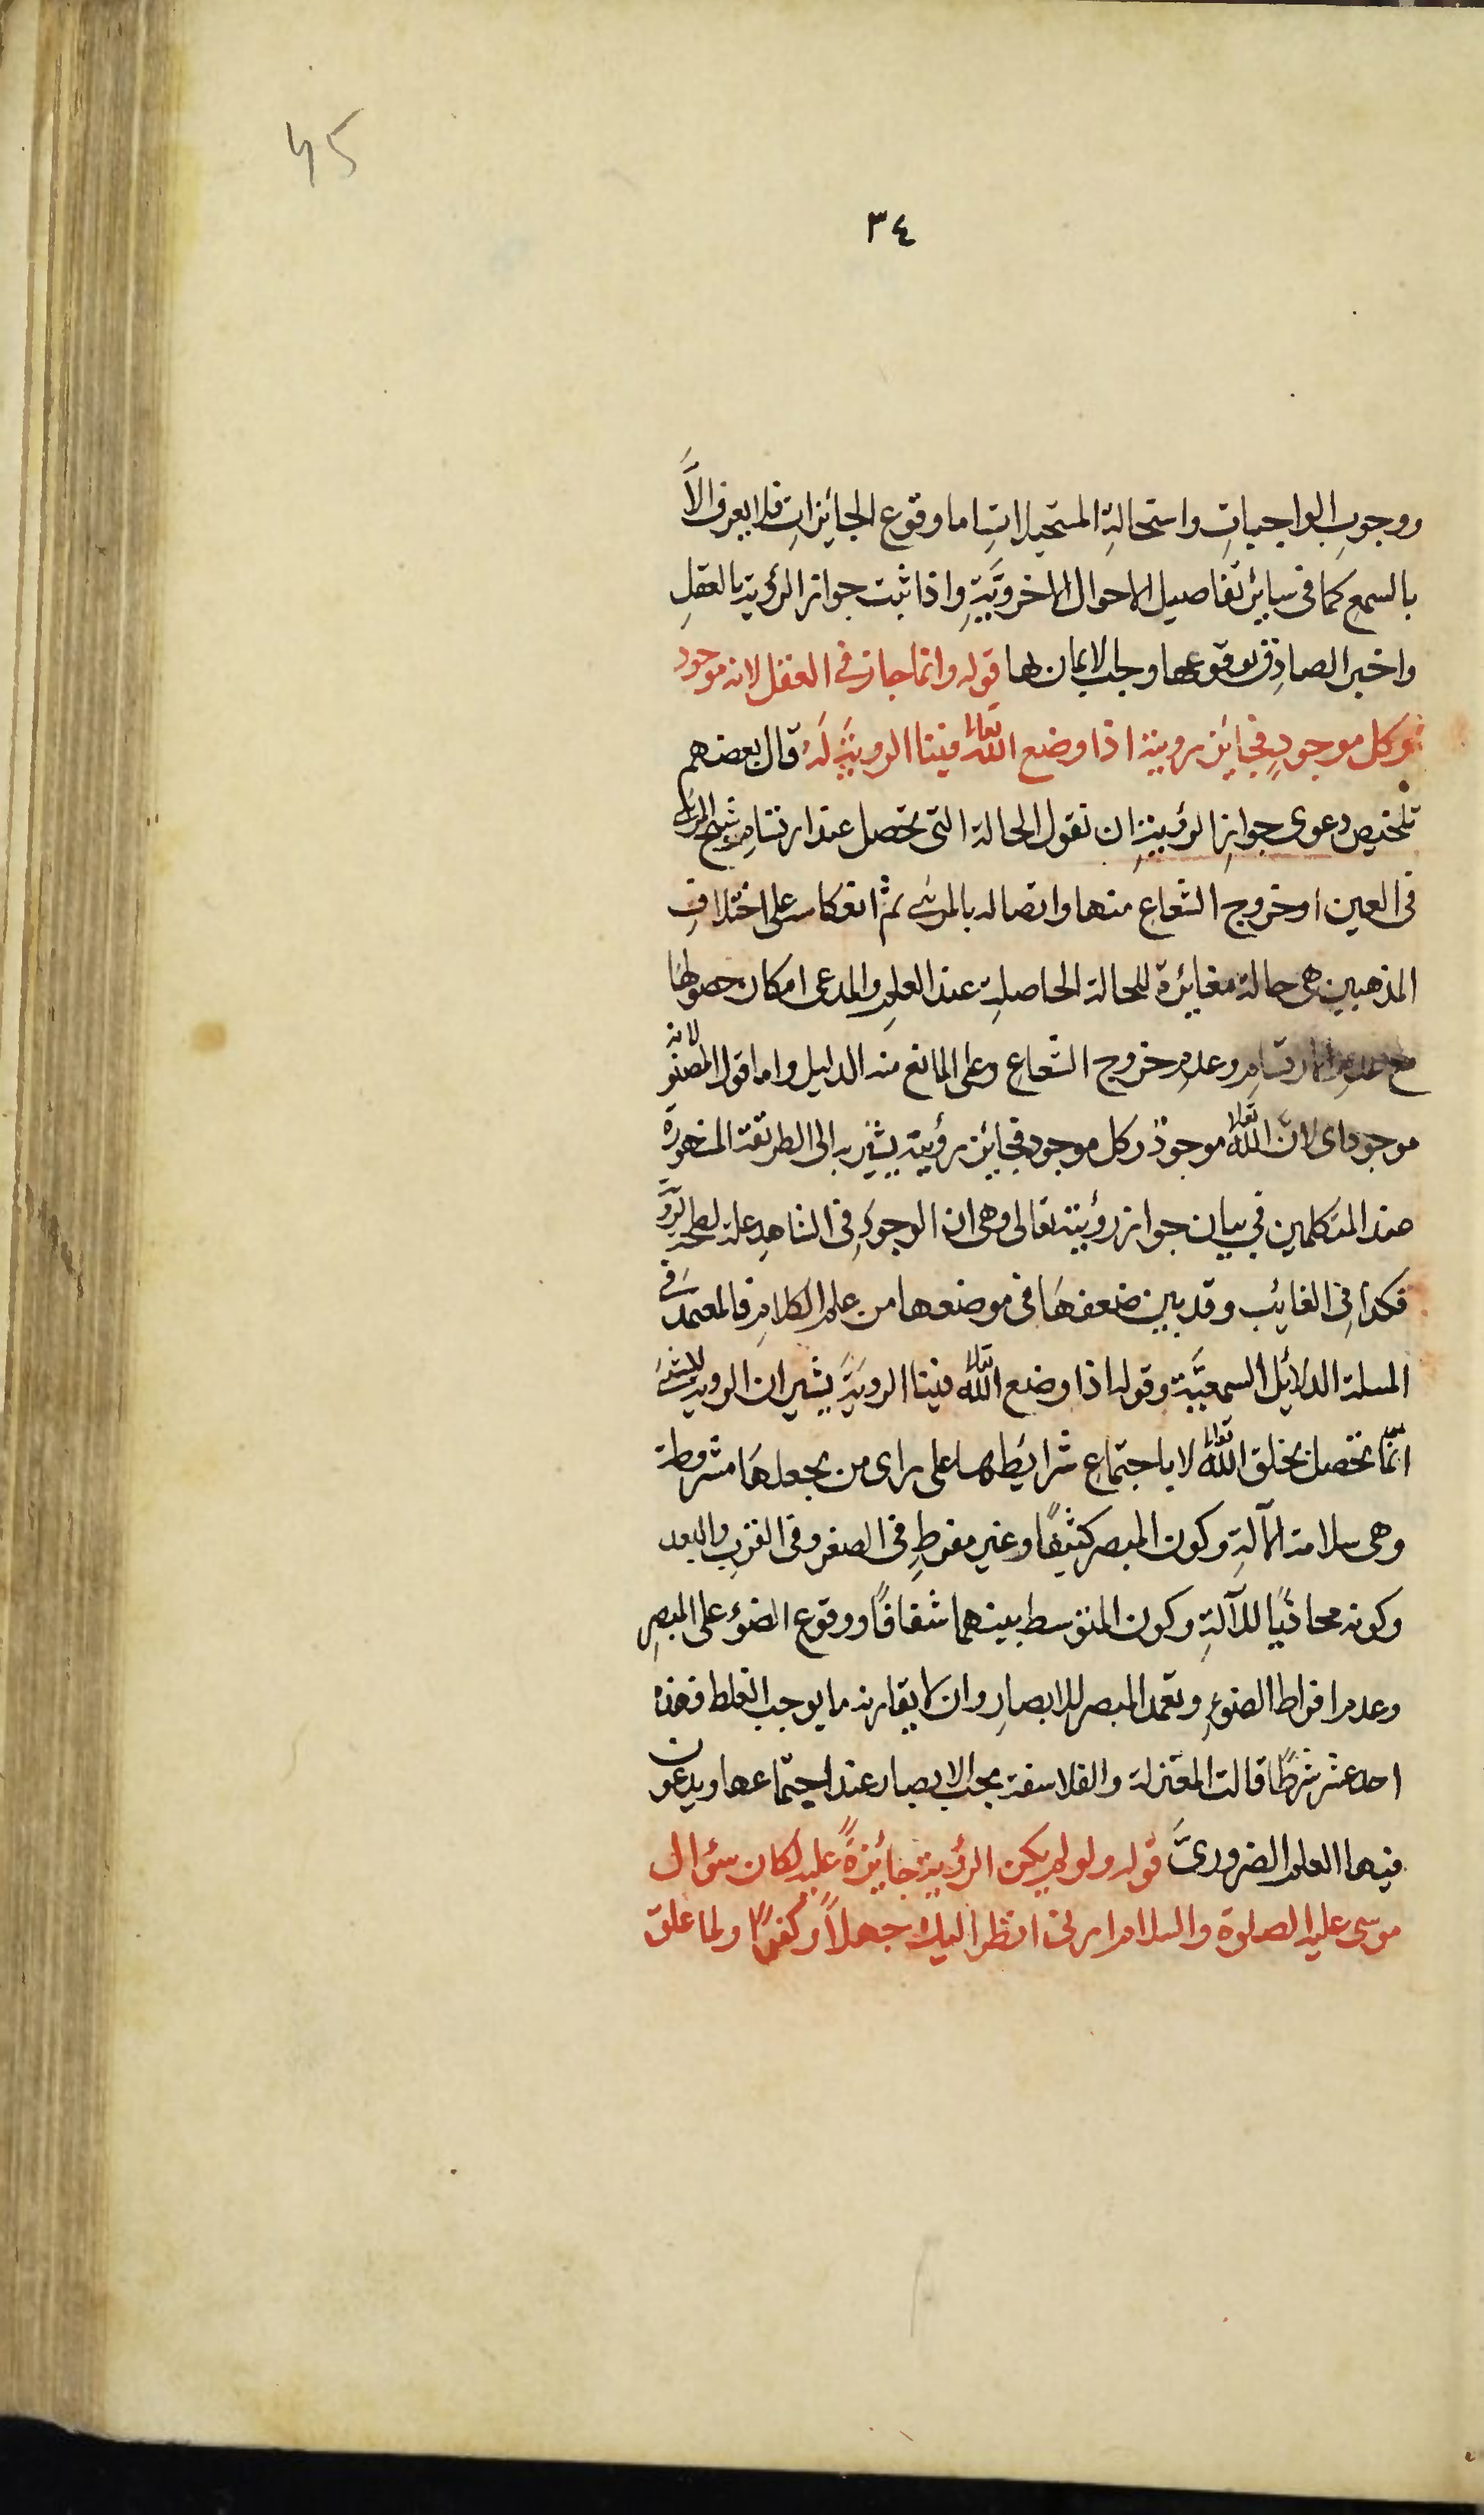 45
٣٤
ووجوبِ الواجباتِ واستحالةِ المستحيلاتِ اما وقوع الجائزاتِ فلا يعرف الاَّ
بالسمع كما فى سائر تفاصيل الاحوال الاخرويَّةِ واذا ثبت جواز الرؤية بالعقلِ
واخبر الصادق بوقوعها وجب الايمان لها قوله وانما جاز فى العقل لانه موجود
وكل موجودٍ فجائز رويته اذا وضع اللّه تعالى فينا الرويَةَ لَهُ قال بعضهم
تلخيص دعوى جوازِ الرؤيةِ ان نقول الحالة التى تحصل عند ارتسامِ شبح المرئى
فى العين او خروج الشعاعِ منها واتصاله بالمرئى ثم انعكاسه على اختلافِ
المذهبين هى حالة مغايرة للحالة الحاصلةِ عند العلمِ والمدعى امكان حصولها
مع عدم الارتسامِ وعدمِ خروج الشعاعِ وعلى المانع منه الدليل واما قول المصنف لانه
موجود اى لانّ اللّه تعالى موجودٌ وكل موجود فجائز رؤيته يشير به الى الطريقة المشهورة
عند المتكلمين فى بيان جواز رؤيته تعالى وهى ان الوجودِ فى الشاهدِ علة لصحة الرؤية
فكذا فى الغائب وقد بين ضعفهَا فى موضعها من علم الكلامِ فالمعتمد فى
المسلة الدلائل السمعيَّة وقوله اذا وضع اللّه تعالى فينا الرويَةَ يشير ان الروية للشئ
انمَّا تحصل بخلق اللّه تعالى لا باجتماعِ شرائطها على راى من يجعلهَا مشروطة
وهى سلامة الآلةِ وكون المبصر كثيفًا وغير مفرطٍ فى الصغر وفى القربِ والبعد
وكونه محاذيًا للآلةِ وكون المتوسط بينهما شفافًا ووقوع الضوء على المبصرِ
وعدم افراط الضوءِ وتعمد المبصر للابصارِ وان لا يقارنه ما يوجب الغلط فهذه
احد عشر شرطًا قالت المعتزلة والفلاسفة يجب الابصار عند اجتماعها ويدعون
فيها العلم الضرورىَّ قوله ولو لم يكن الرؤية جائزةً عليه لكان سؤال
موسى عليه الصلوة والسلام ارنى انظر اليك جهلاً وكفرًا ولما علق